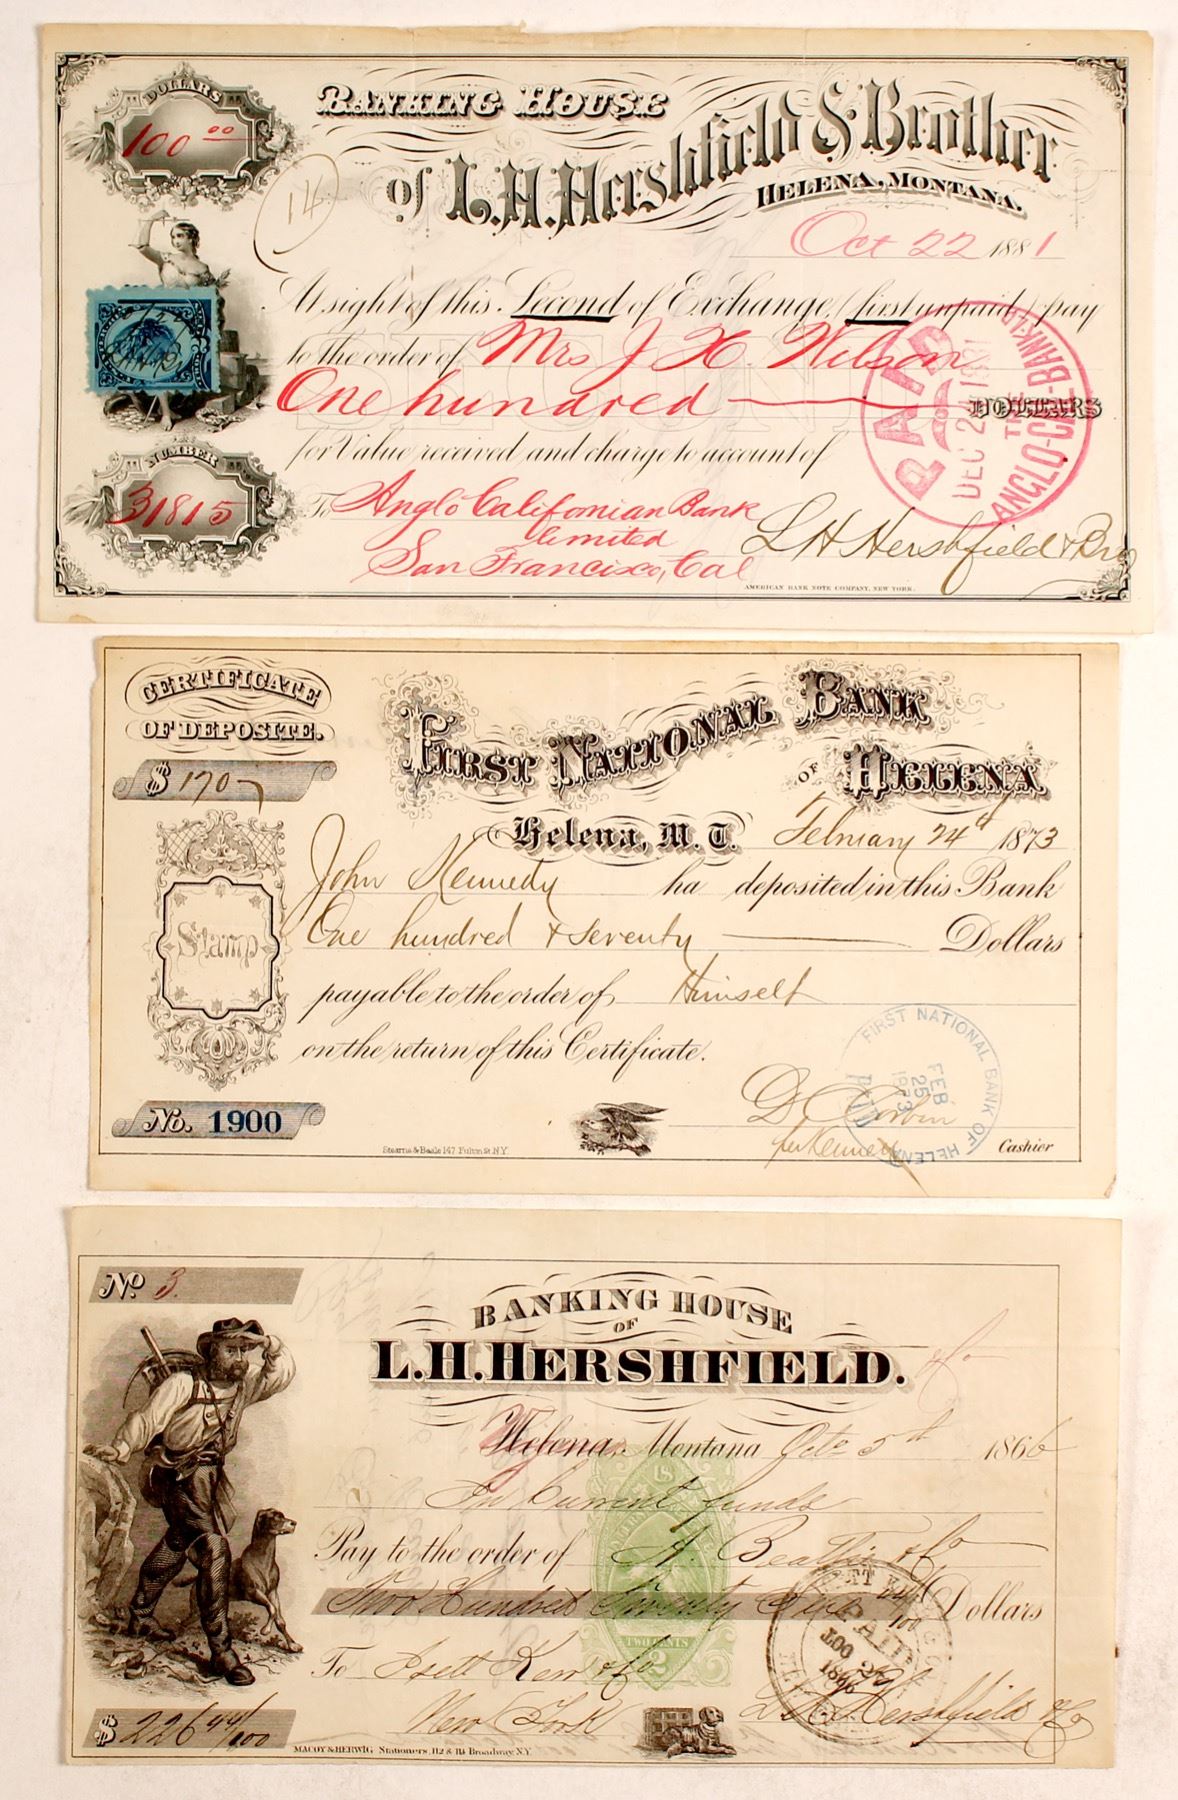 DOLLARS
100 00
BANKING HOUSE
of L.H. Hershfield & Brother
HELENA, MONTANA.
14
Oct 22 1881
At sight of this Second of Exchange, (first unpaid) pay
to the order of Mrs J H. Wilson
One hundred DOLLARS
for Value received and charge to account of
NUMBER
31815
To Anglo Califonian Bank
limited
San Francisco, Cal
L H Hershfield & Bro
AMERICAN BANK NOTE COMPANY, NEW YORK.
PAID
DEC 1881
THE
ANGLO-CAL-BANK-LD
CERTIFICATE
OF DEPOSITE.
$ 170
FIRST NATIONAL BANK
OF HELENA
Helena, M. T. February 24th 1873
John Kennedy ha deposited in this Bank
One hundred & seventy Dollars
Stamp
payable to the order of Himself
on the return of this Certificate.
No. 1900
D C Corbin
Cashier
Stearns & Beale 147 Fulton St. N.Y.
FIRST NATIONAL BANK OF HELENA
FEB
25
1873
PAID
No. 3.
BANKING HOUSE
OF
L.H. HERSHFIELD. & Co
Helena, Montana Oct 5th 1866
In Current funds
Pay to the order of A. Beattie & Co
Two Hundred Twenty Six 44/100 Dollars
To & Co
New York
TWO CENTS
2
PAID
OCT
1866
L H Hershfield & Co
$ 226 44/100
MACOY & HERWIG Stationers, 112 & 114 Broadway, N.Y.